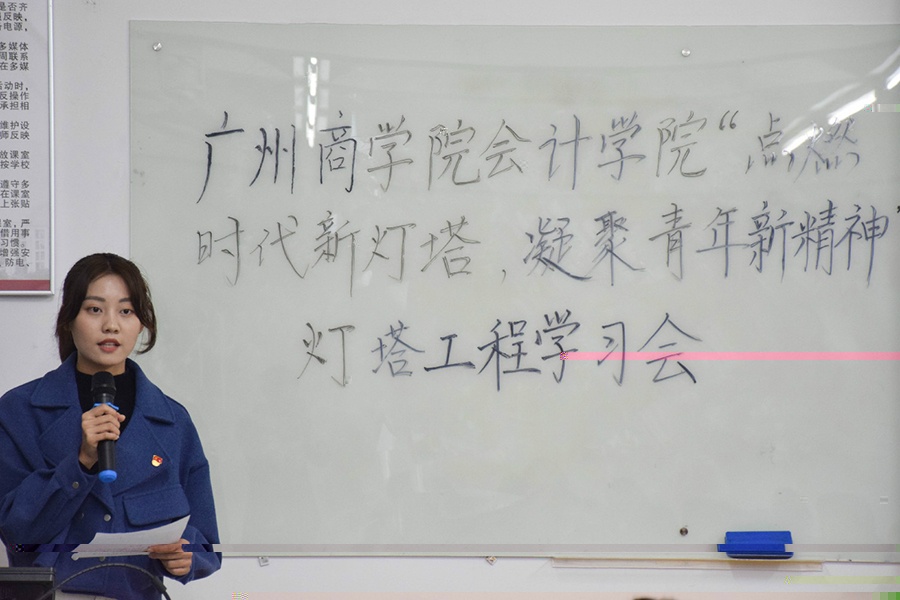 是否齐
反映，
电源，
多媒体
周联系
在多媒
活动时，
反操作
承担相
维护设
师反映
放课室
按学校
遵守多
在课室
上张贴
室，严
借用事
习惯。
增强安
防电、
广州商学院会计学院“点燃
时代新灯塔，凝聚青年新精神”
灯塔工程学习会